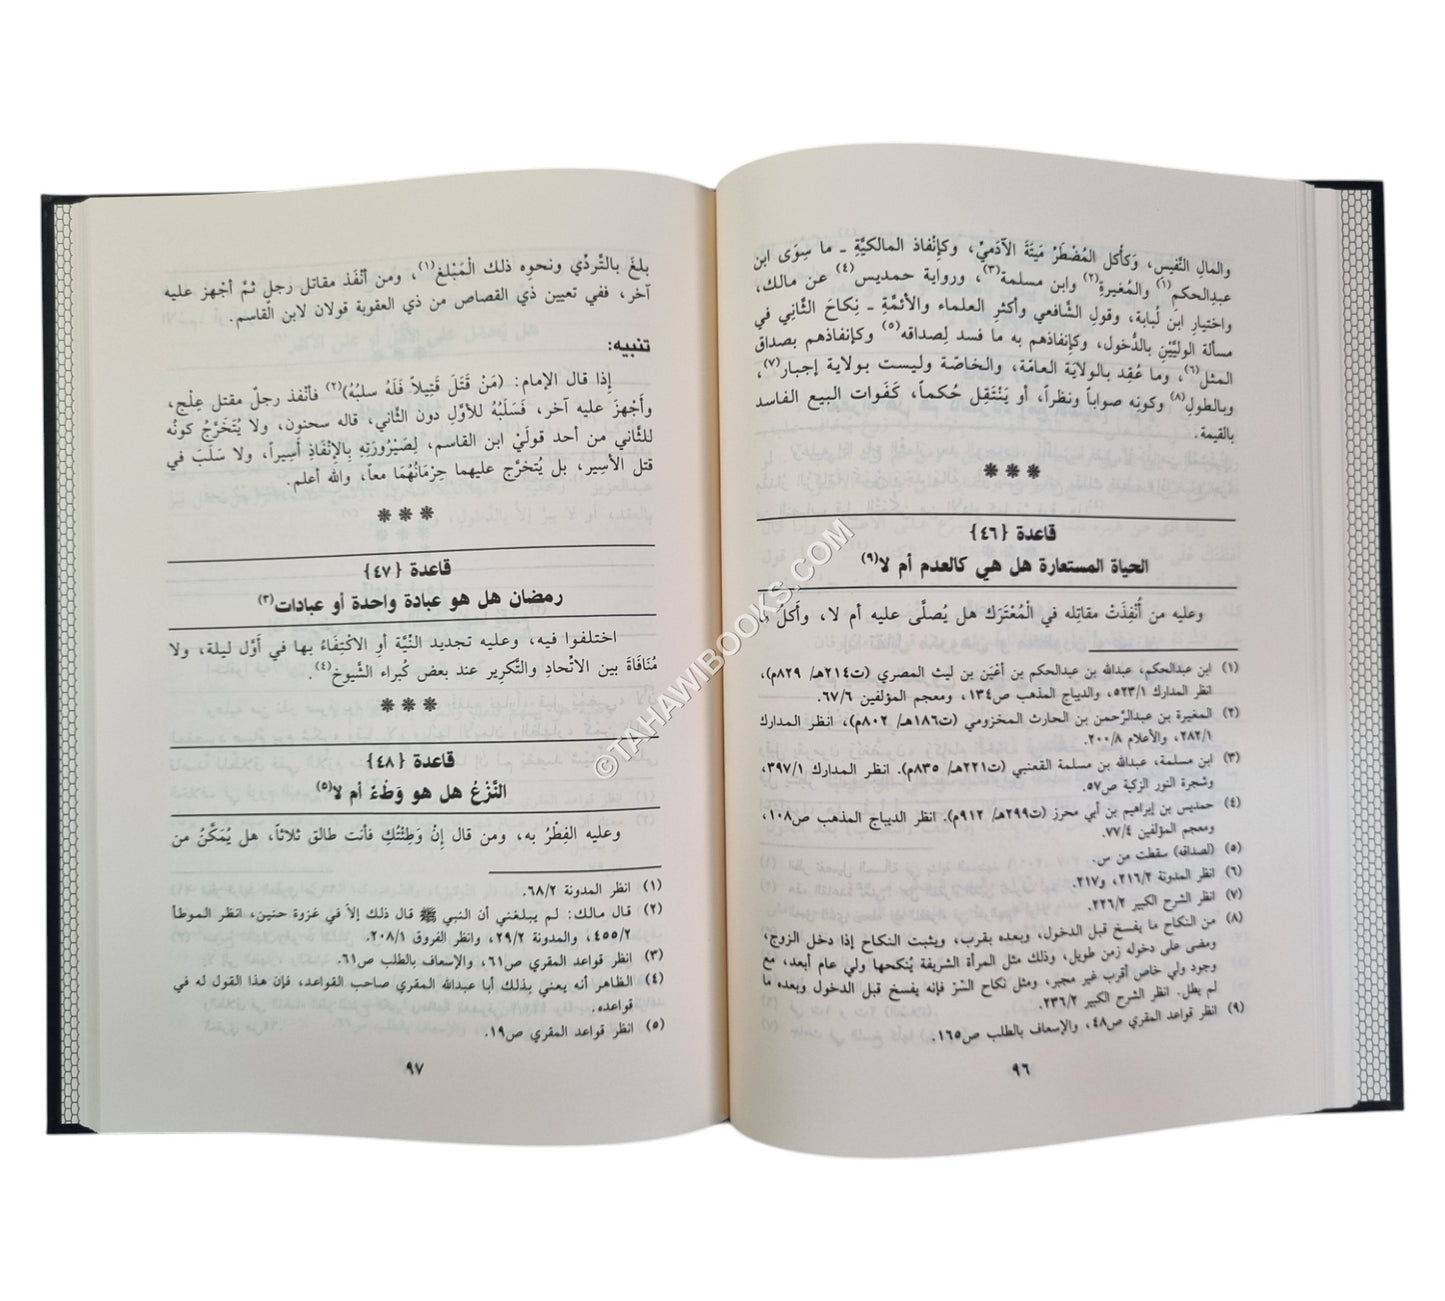 والمالِ النَّفيس، وَكأكل المُضْطَرُ مَيتَةَ الآدَميِّ، وكإنْفاذ المالكيَّةِ ـ ما سِوَى ابن
عبدِالحكم(١) والمُغيرةِ(٢) وابن مسلمة(٣)، ورواية حمديس(٤) عن مالك،
واختيارِ ابن لُبابة، وقولِ الشَّافعي وأكثرِ العلماء والأئمَّةِ ـ نِكاحَ الثَّاني في
مسألة الوليَّيْنِ بالدُّخول، وكإنفاذهم به ما فسد لِصداقه(٥) وكإنفاذهم بصداق
المثل(٦)، وما عُقِد بالولايَة العامَّة، والخاصَّة وليست بولاية إجبار(٧)،
وبالطولِ(٨) وكونِه صواباً ونظراً، أو يَنْتَقِل حُكماً، كَفَوات البيع الفاسد
بالقيمة.
❋ ❋ ❋
قاعدة {٤٦}
الحياة المستعارة هل هي كالعدم أم لا(٩)
وعليه من أُنْفِذَتْ مقاتِله في الْمُعْتَرَك هل يُصلَّى عليه أم لا، وأكل
(١) ابن عبدالحكم، عبدالله بن عبدالحكم بن أعْيَن بن ليث المصري (ت٢١٤هـ/ ٨٢٩م)،
انظر المدارك ٥٢٣/١، والديباج المذهب ص١٣٤، ومعجم المؤلفين ٦٧/٦.
(٢) المغيرة بن عبدالرَّحمن بن الحارث المخزومي (ت١٨٦هـ/ ٨٠٢م)، انظر المدارك
٢٨٢/١، والأعلام ٢٠٠/٨.
(٣) ابن مسلمة، عبدالله بن مسلمة القعنبي (ت٢٢١هـ/ ٨٣٥م). انظر المدارك ٣٩٧/١،
وشجرة النور الزكية ص٥٧.
(٤) حمديس بن إبراهيم بن أبي محرز (ت٢٩٩هـ/ ٩١٢م). انظر الديباج المذهب ص١٠٨،
ومعجم المؤلفين ٧٧/٤.
(٥) (لصداقه) سقطت من س.
(٦) انظر المدونة ٢١٦/٢، و٢١٧.
(٧) انظر الشرح الكبير ٢٢٦/٢.
(٨) من النكاح ما يفسخ قبل الدخول، وبعده بقرب، ويثبت النكاح إذا دخل الزوج،
ومضى على دخوله زمن طويل، وذلك مثل المرأة الشريفة يُنكحها ولي عام أبعد، مع
وجود ولي خاص أقرب غير مجبر، ومثل نكاح السّرّ فإنه يفسخ قبل الدخول وبعده ما
لم يطل. انظر الشرح الكبير ٢٣٦/٢.
(٩) انظر قواعد المقري ص٤٨، والإسعاف بالطلب ص١٦٥.
٩٦
بلغَ بالتَّردِّي ونحوِه ذلك الْمَبْلغ(١)، ومن أنْفَذ مقاتل رجلٍ ثمَّ أجْهز عليه
آخر، ففي تعيين ذي القصاص من ذي العقوبة قولان لابن القاسم.
تنبيه:
إذا قال الإمام: (مَنْ قَتَلَ قَتِيلاً فَلَهُ سلبُهُ)(٢) فأنْفذ رجلٌ مقتل عِلْج،
وأَجْهزَ عليه آخر، فَسَلَبُهُ للأوَّلِ دون الثَّاني، قاله سحنون، ولا يُتَخَرَّجُ كونُه
للثَّاني من أحد قولَيْ ابن القاسم، لِصَيْرُورَتِهِ بِالإنْفاذِ أَسِيراً، ولا سَلَبَ في
قتل الأسير، بل يُتخرَّج عليهما حِرْمَانُهُمَا معاً، والله أعلم.
❋ ❋ ❋
قاعدة {٤٧}
رمضان هل هو عبادة واحدة أو عبادات(٣)
اختلفوا فيه، وعليه تجديد النِّيَّة أوِ الاكْتِفَاءُ بها في أوَّل ليلة، ولا
مُنَافَاةَ بين الاتِّحادِ والتَّكرِير عند بعض كُبراء الشَّيوخ(٤).
❋ ❋ ❋
قاعدة {٤٨}
النَّزْعُ هل هو وَطْءٌ أم لا(٥)
وعليه الفِطْرُ به، ومن قال إنْ وَطِئْتُكِ فأنت طالق ثلاثاً، هل يُمَكَّنُ من
(١) انظر المدونة ٦٨/٢.
(٢) قال مالك: لم يبلغني أن النبي ﷺ قال ذلك إلاّ في غزوة حنين، انظر الموطأ
٤٥٥/٢، والمدونة ٢٩/٢، وانظر الفروق ٢٠٨/١.
(٣) انظر قواعد المقري ص٦١، والإسعاف بالطلب ص٦١.
(٤) الظاهر أنه يعني بذلك أبا عبدالله المقري صاحب القواعد، فإن هذا القول له في
قواعده.
(٥) انظر قواعد المقري ص١٩.
٩٧
©TAHAWIBOOKS.COM